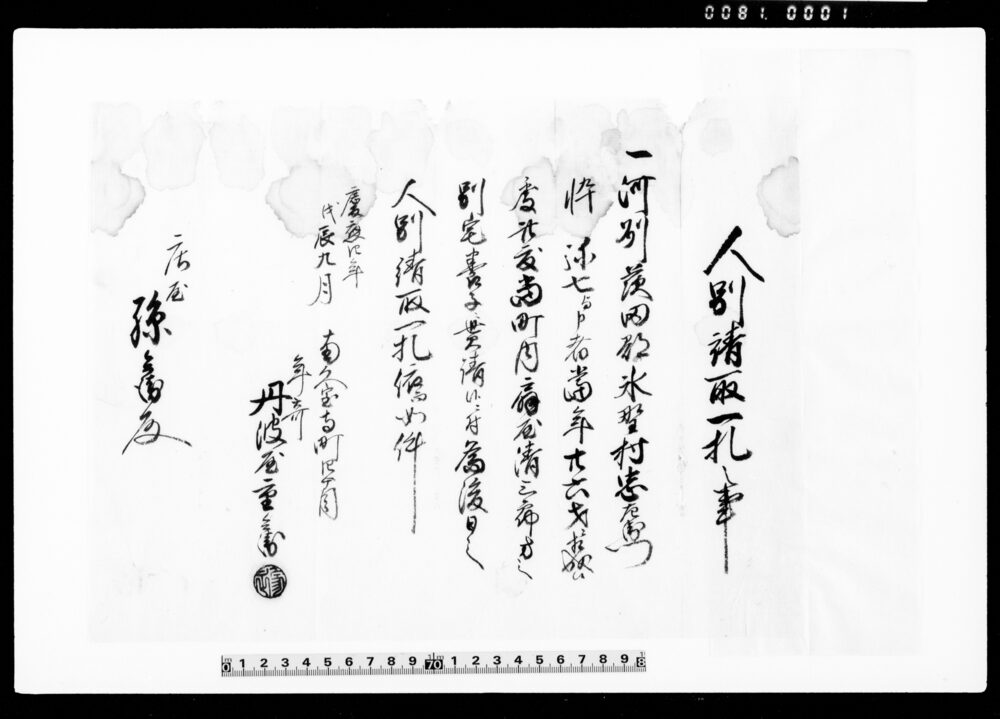 0081. 0001
人別請取一札之事
一河州茨田郡氷野村忠左衛門
忰 弥七与申者当年廿六才
処此度当町内扇屋清三郎方江
別宅養子貰請候ニ付為後日之
人別請取一札依而如件
慶応四年
戊辰九月
南久宝寺町四丁目
年寄
丹波屋重兵衛
庄屋
孫兵衛殿
0 1 2 3 4 5 6 7 8 9 10 1 2 3 4 5 6 7 8 9